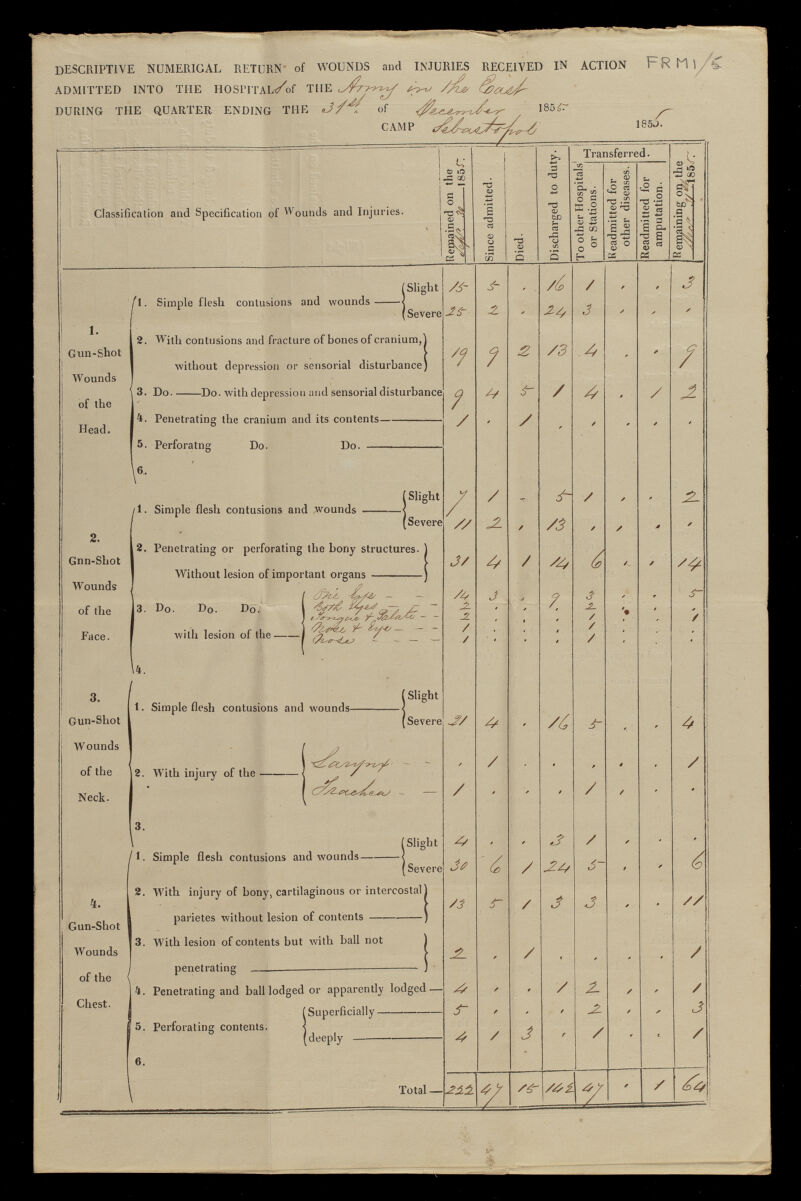 DESCRIPTIVE NUMERIGAL RETURN of WOUNDS and INJURIES RECEIVED IN ACTION FRM1/5
ADMITTED INTO THE HOSPITAL of THE Army in the East
DURING THE QUARTER ENDING THE 31st of December 1855
CAMP Sebastopol 1855.
Classification and Specification of Wounds and Injuries. Remained on the 1855. Since admitted. Died. Discharged to duty. Transferred. To other Hospitals or Stations. Readmitted for other diseases. Readmitted for amputation. Remaining on the 1855.
1. Gun-Shot Wounds of the Head.
1. Simple flesh contusions and wounds
Slight 15 5 , 16 1 , , 3
Severe 25 2 , 24 3 , , ,
2. With contusions and fracture of bones of cranium,
without depression or sensorial disturbance 19 9 2 13 4 , , 9
3. Do. Do. with depression and sensorial disturbance 9 4 5 1 4 , 1 2
4. Penetrating the cranium and its contents 1 , 1 , , , , ,
5. Perforatng Do. Do.
6.
2. Gnn-Shot Wounds of the Face.
1. Simple flesh contusions and wounds
Slight 7 1 - 5 1 , , 2
Severe 11 2 , 13 , , , ,
2. Penetrating or perforating the bony structures.
Without lesion of important organs 31 4 1 14 6 , , 14
3. Do. Do. Do.
with lesion of the
One Eye 14 3 , 9 3 , , 5
Both Eyes 2 , , , 2 , , ,
Tongue & Palate 2 , , , 1 , , 1
Nose & Eye 1 , , , 1 , , .
Nose 1 , , , 1 , . .
4.
3. Gun-Shot Wounds of the Neck.
1. Simple flesh contusions and wounds
Slight
Severe 21 4 , 16 5 , , 4
2. With injury of the
Larynx , 1 . , , , , 1
Trachea 1 , , , 1 , , ,
3.
4. Gun-Shot Wounds of the Chest.
1. Simple flesh contusions and wounds
Slight 4 , , 3 1 , , ,
Severe 30 6 1 24 5 , , 6
2. With injury of bony, cartilaginous or intercostal
parietes without lesion of contents 13 5 1 3 3 , , 11
3. With lesion of contents but with ball not
penetrating 2 , 1 , , , , 1
4. Penetrating and ball lodged or apparently lodged 4 , , 1 2 , , 1
5. Perforating contents.
Superficially 5 , , , 2 , , 3
deeply 4 1 3 , 1 , , 1
6.
Total 222 47 15 142 47 , 1 64